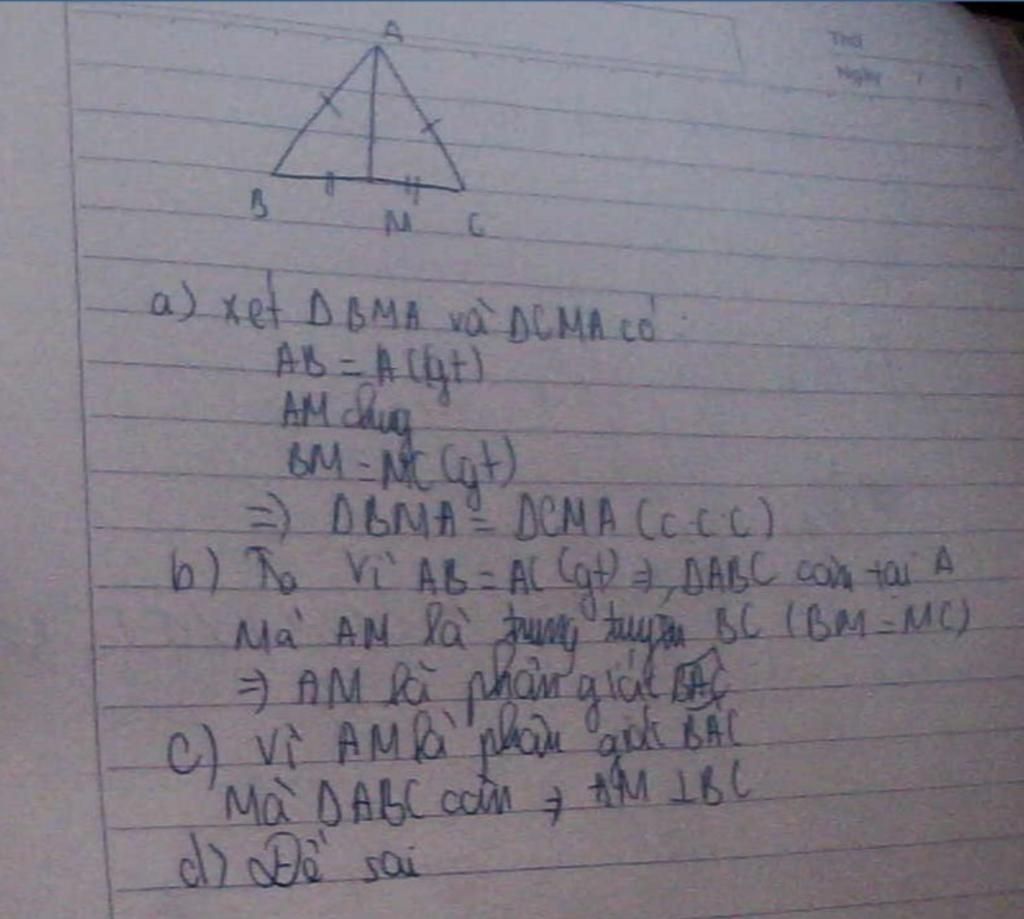 Thứ
Ngày / /
A
B
M
C
a) xét ΔBMA và ΔCMA có:
AB = AC (gt)
AM chung
BM = MC (gt)
=> ΔBMA = ΔCMA (c.c.c)
b) Vì AB = AC (gt) => ΔABC cân tại A
Mà AM là trung tuyến BC (BM = MC)
=> AM là phân giác BAC
c) Vì AM là phân giác BAC
Mà ΔABC cân => AM ⊥ BC
d) Đề sai